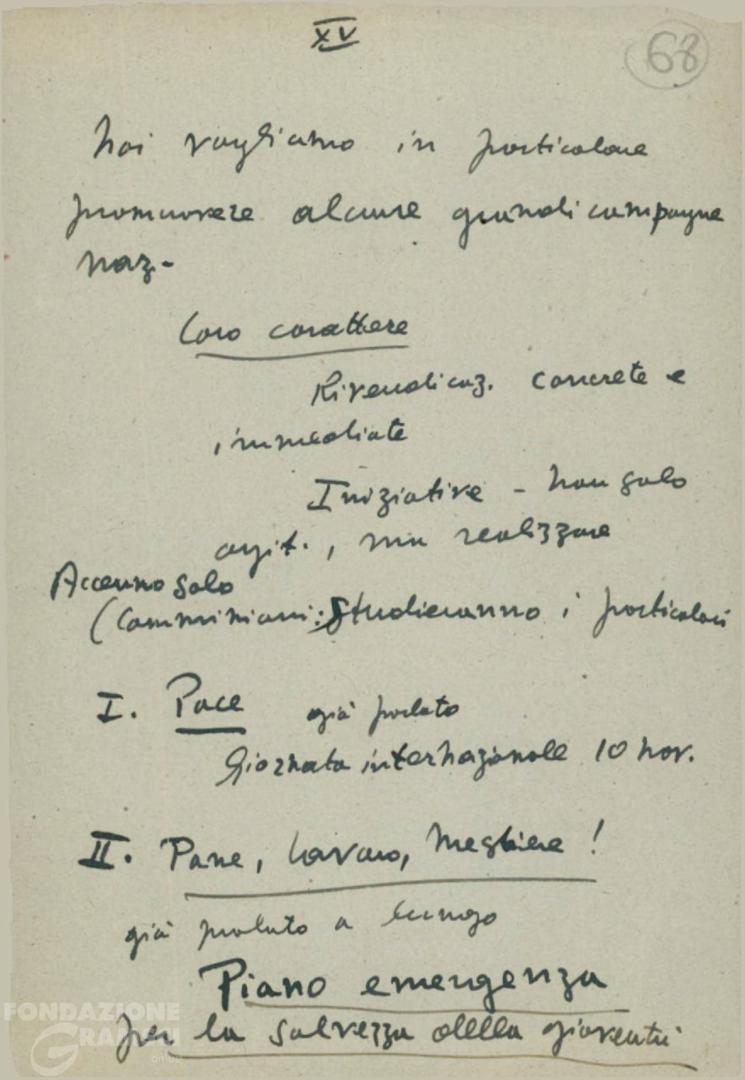 XV
68
Noi vogliamo in particolare
promuovere alcune grandi campagne
naz-
Loro carattere
Rivendicaz. concrete e
immediate
Iniziative - non solo
agit., ma realizzare
Accenno solo
(Commissioni: studieranno i particolari
I. Pace già parlato
Giornata internazionale 10 nov.
II. Pane, lavoro, mestiere!
già parlato a lungo
Piano emergenza
per la salvezza della gioventù
FONDAZIONE
GRAMSCI